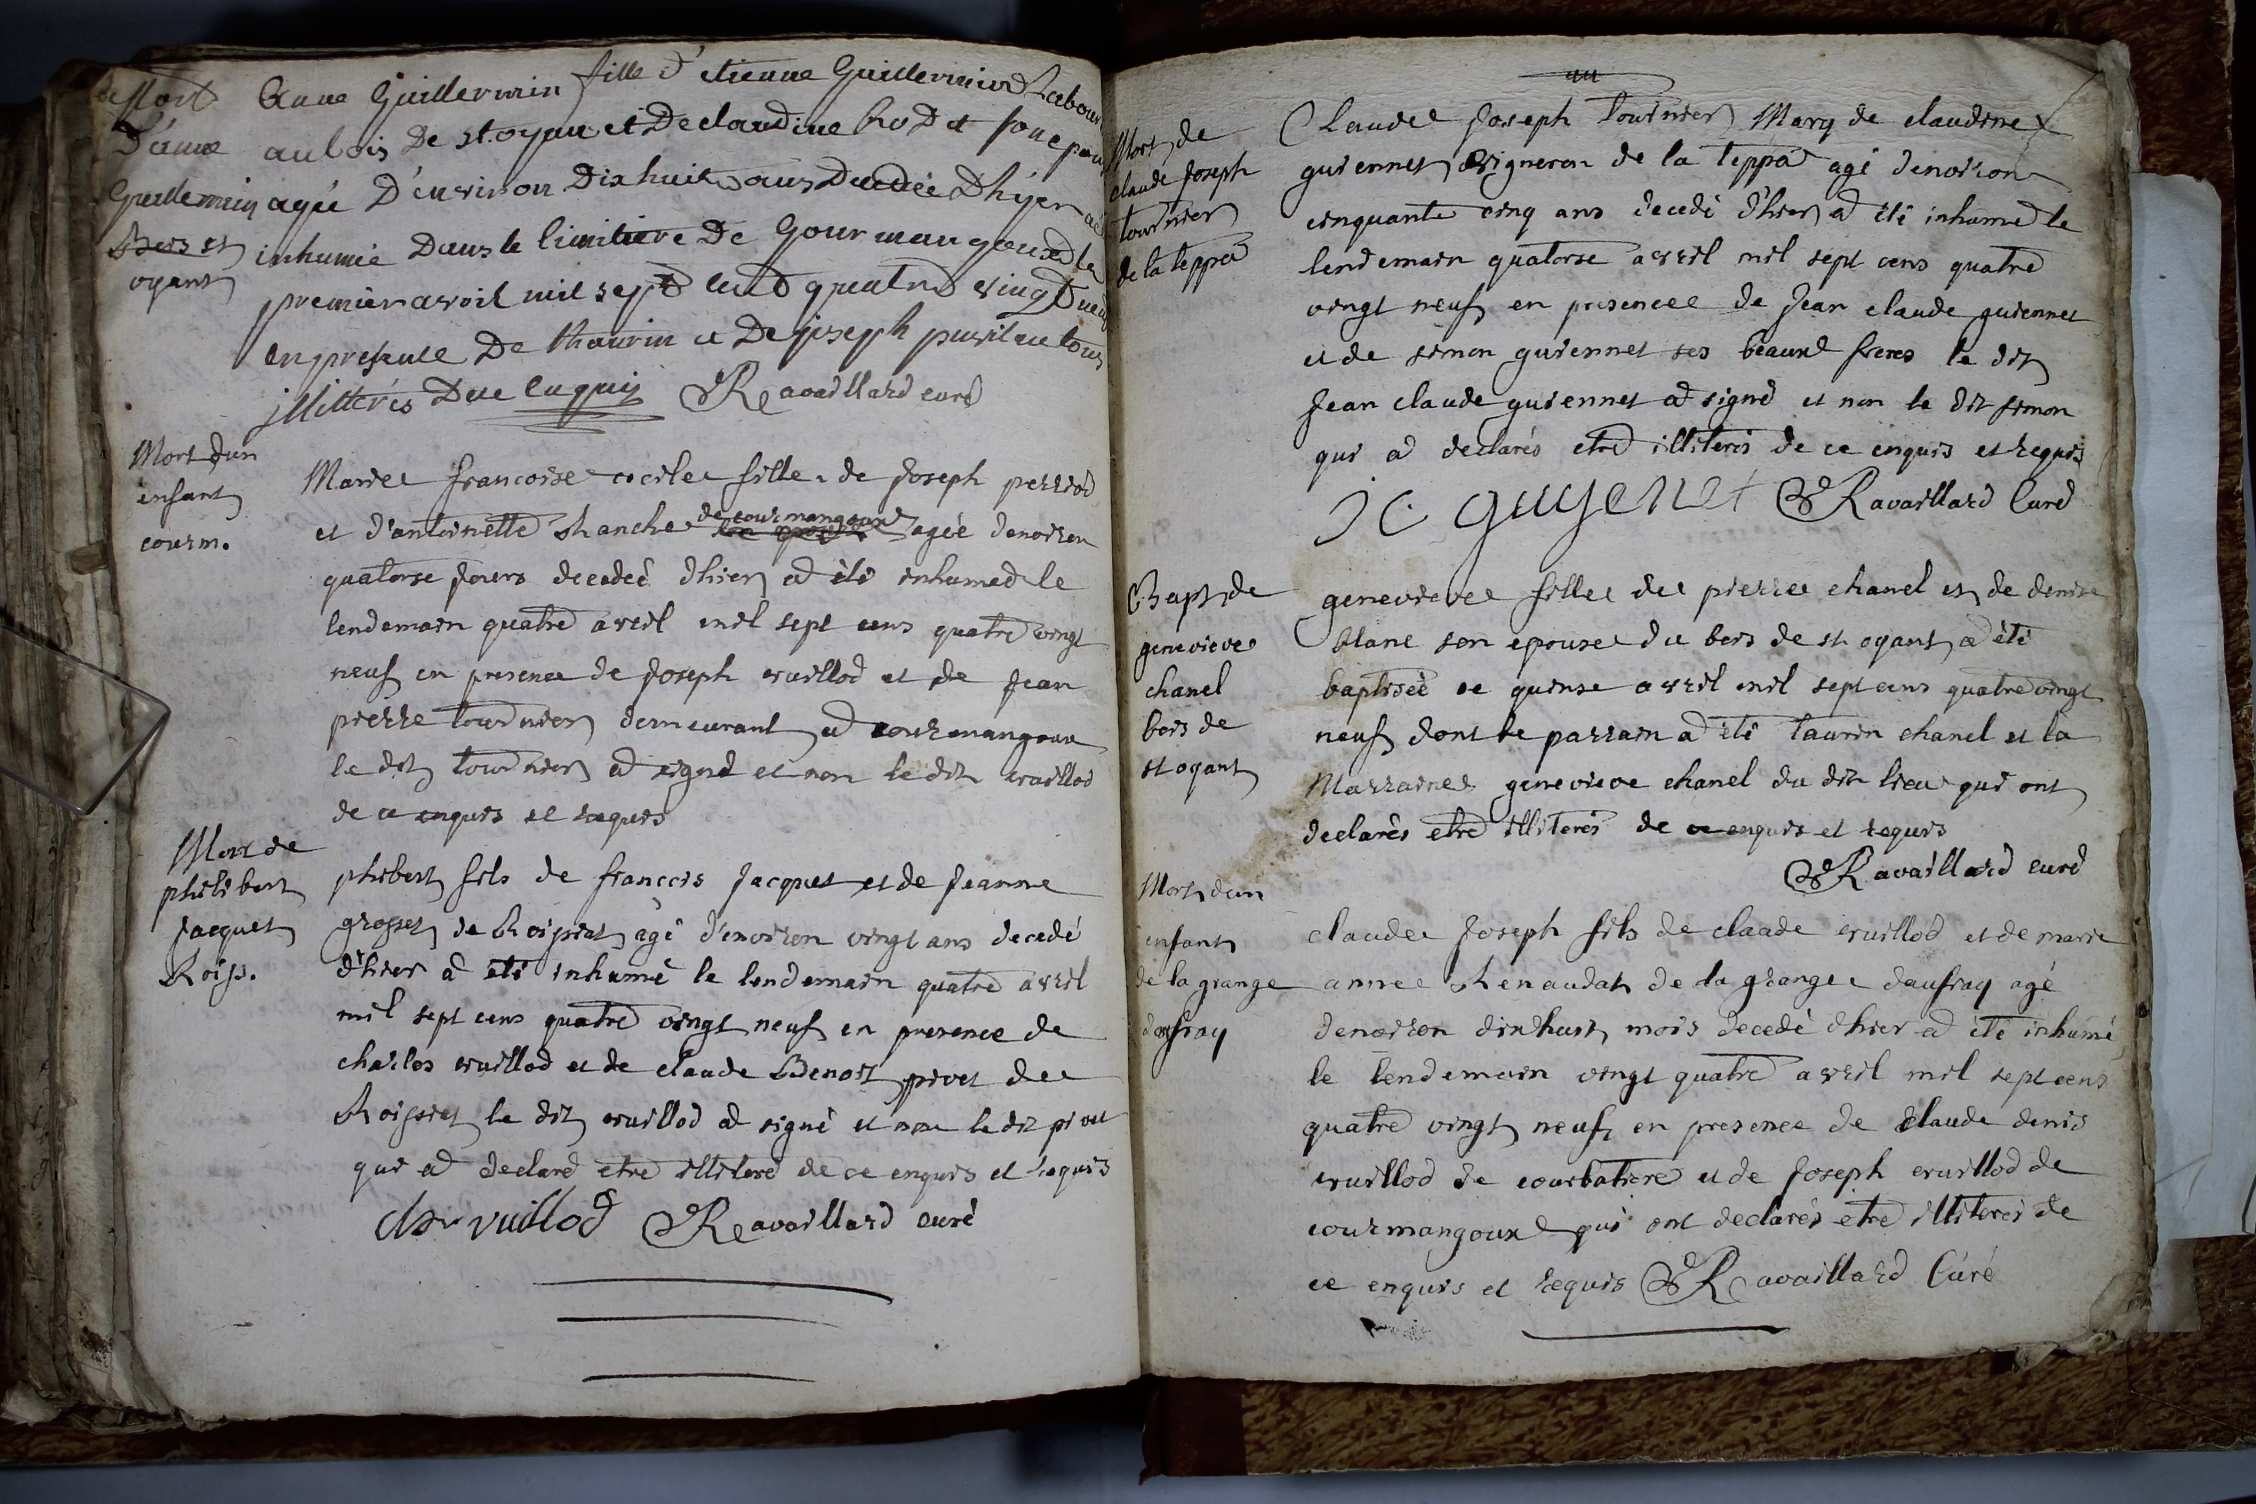 Mort
D'anne
Guillermin
Bois st
oyant
Anne Guillermin fille d'etienne Guillermin Labour
au bois De st oyant et De claudine son epou
agée D'environ Dix huit ans Decedée D'hyer a été
inhumée Dans le Cimitiere De Gourmangoux le
premier avril mil sept cent quatre vingt neuf
en presence De thaurin et De joseph tous
illitterés De ce enquis Ravaillard curé
Mort dun
enfant
courm.
Marie francoise cecile fille de Joseph perriod
et d'antoinette de courmangoux agée denviron
quatorse jours decedeé dhier a été inhumé le
lendemain quatre avril mil sept cens quatre vingt
neuf en presence de Joseph vuillod et de Jean
pierre tournier demeurant a courmangoux
le dit tournier a signé et non le dit vuillod
de ce enquis et requis
Mort de
philibert
Jacquet
Roiss.
phibert fils de francois Jacquet et de Jeanne
grosset de Roissiat agé d'environ vingt ans decedé
d'hier a été inhumé le lendemain quatre avril
mil sept cens quatre vingt neuf en presence de
charles vuillod et de claude Benoit pivet de
Roissiat le dit vuillod a signé et non le dit pivet
qui a declaré etre illiteré de ce enquis et requis
chs vuillod Ravaillard curé
Mort de
claude Joseph
tournier
de la teppa
Claude Joseph tournier Mary de claudine
guiennet vigneron de la teppa agé denviron
cinquante cinq ans decedé d'hier a été inhumé le
lendemain quatorse avril mil sept cens quatre
vingt neuf en presence de Jean claude guiennet
et de simon guiennet ses beaux freres le dit
Jean claude guiennet a signé et non le dit simon
qui a declarés etre illiterés de ce enquis et requis
J C guyenet Ravaillard Curé
Bapt de
genevieve
chanel
bois de
st oyant
genevieve fille de pierre chanel et de denise
blanc son epouse du bois de st oyant a été
baptisée ce quinse avril mil sept cens quatre vingt
neuf dont le parrain a été taurin chanel et la
Marraine genevieve chanel du dit lieu qui ont
declarés etre illiterés de ce enquis et requis
Ravaillard curé
Mort dun
enfant
de la grange
daufray
claude Joseph fils de claude vuillod et de marie
anne Renaudat de la grange daufray agé
denviron dixhuit mois decedé dhier a été inhumé
le lendemain vingt quatre avril mil sept cens
quatre vingt neuf en presence de claude denis
vuillod de courbatiere et de Joseph vuillod de
courmangoux qui ont declarés etre illiterés de
ce enquis et requis Ravaillard Curé